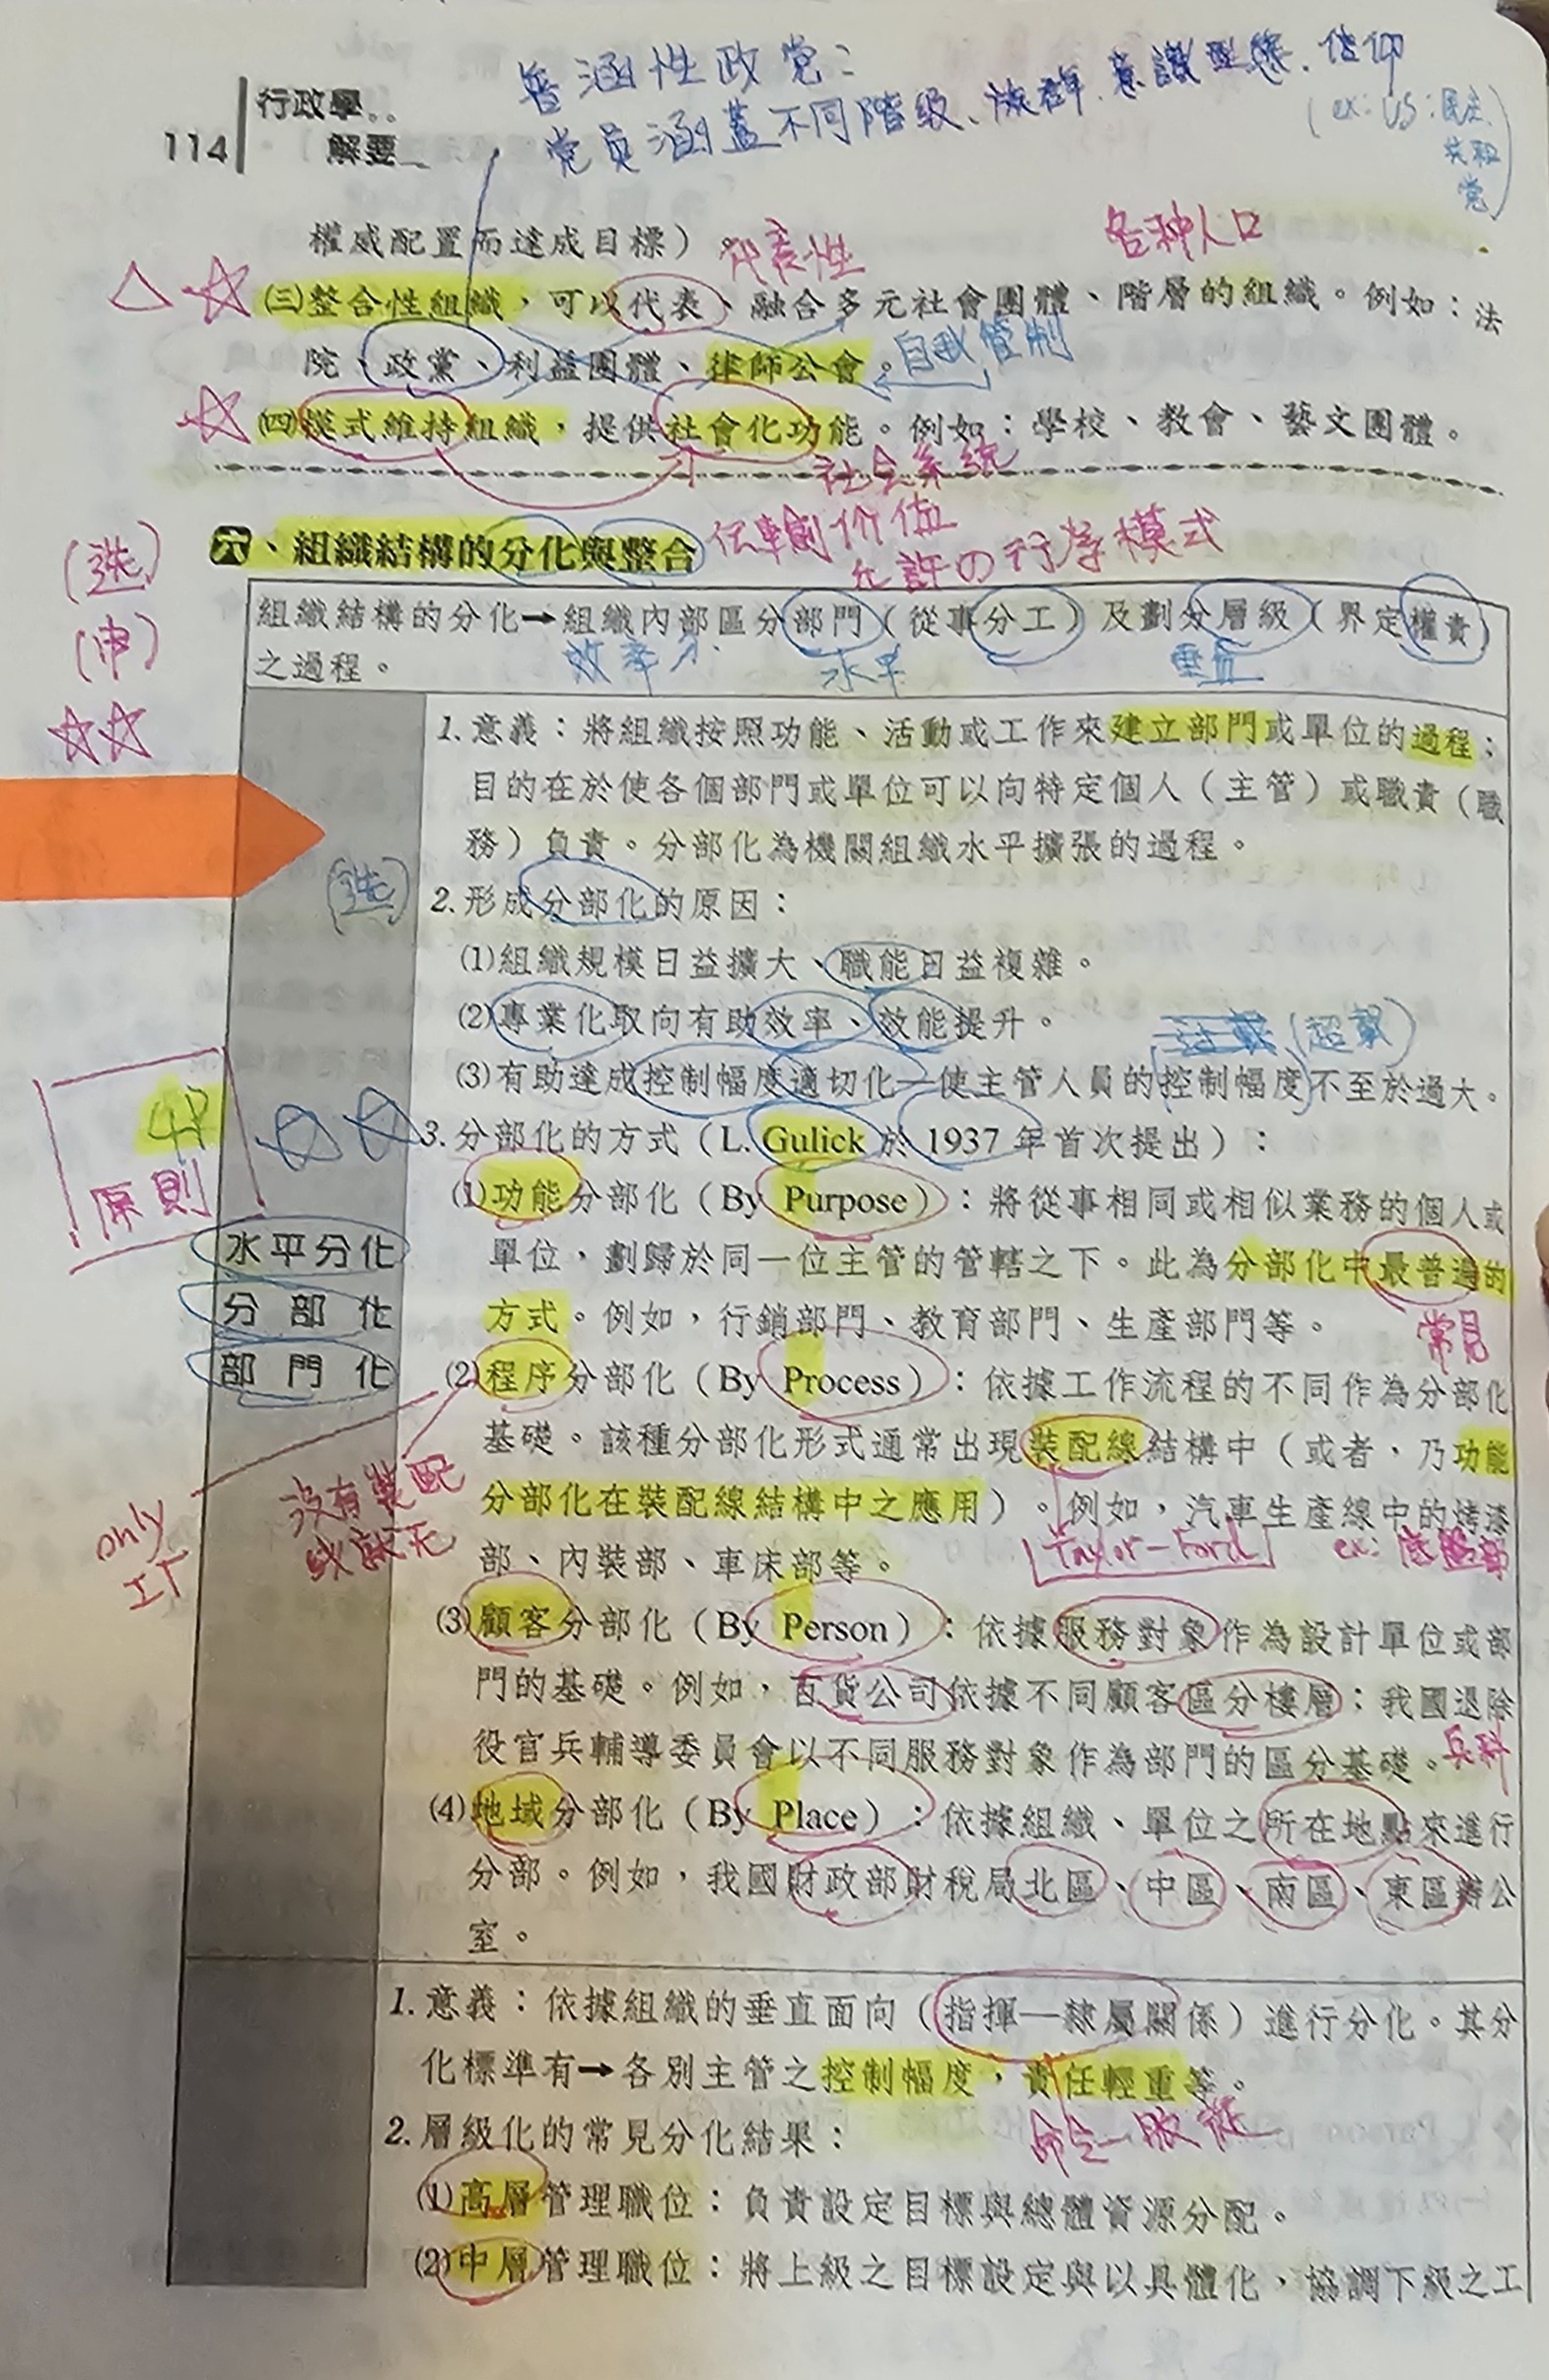 普涵性政党：
党員涵蓋不同階級、族群、意識型態、信仰
(ex: US: 民主、
共和
党)
行政學
114
解要
權威配置而達成目標）。
代表性
各种人口
㈢整合性組織，可以代表、融合多元社會團體、階層的組織。例如：法
院、政黨、利益團體、律師公會。
自我管制
㈣模式維持組織，提供社會化功能。例如：學校、教會、藝文團體。
社会系統
(選)
(申)
六、組織結構的分化與整合
伝輸価值
允許の行為模式
組織結構的分化→組織內部區分部門（從事分工）及劃分層級（界定權責）
之過程。
效率↗
水平
垂直
1.意義：將組織按照功能、活動或工作來建立部門或單位的過程；
目的在於使各個部門或單位可以向特定個人（主管）或職責（職
務）負責。分部化為機關組織水平擴張的過程。
(選)
2.形成分部化的原因：
⑴組織規模日益擴大、職能日益複雜。
⑵專業化取向有助效率、效能提升。
⑶有助達成控制幅度適切化—使主管人員的控制幅度不至於過大。
4P
原則
水平分化
分部化
部門化
3.分部化的方式（L. Gulick 於 1937 年首次提出）：
⑴功能分部化（By Purpose）：將從事相同或相似業務的個人或
單位，劃歸於同一位主管的管轄之下。此為分部化中最普遍的
方式。例如，行銷部門、教育部門、生產部門等。
常見
⑵程序分部化（By Process）：依據工作流程的不同作為分部化
基礎。該種分部化形式通常出現裝配線結構中（或者，乃功能
分部化在裝配線結構中之應用）。例如，汽車生產線中的烤漆
部、內裝部、車床部等。
only
工厂
沒有裝配
Taylor-Ford
ex: 底盤部
⑶顧客分部化（By Person）：依據服務對象作為設計單位或部
門的基礎。例如，百貨公司依據不同顧客區分樓層；我國退除
役官兵輔導委員會以不同服務對象作為部門的區分基礎。
兵科
⑷地域分部化（By Place）：依據組織、單位之所在地點來進行
分部。例如，我國財政部財稅局北區、中區、南區、東區辦公
室。
1.意義：依據組織的垂直面向（指揮—隸屬關係）進行分化。其分
化標準有→各別主管之控制幅度，責任輕重等。
命令—服從
2.層級化的常見分化結果：
⑴高層管理職位：負責設定目標與總體資源分配。
⑵中層管理職位：將上級之目標設定與以具體化，協調下級之工